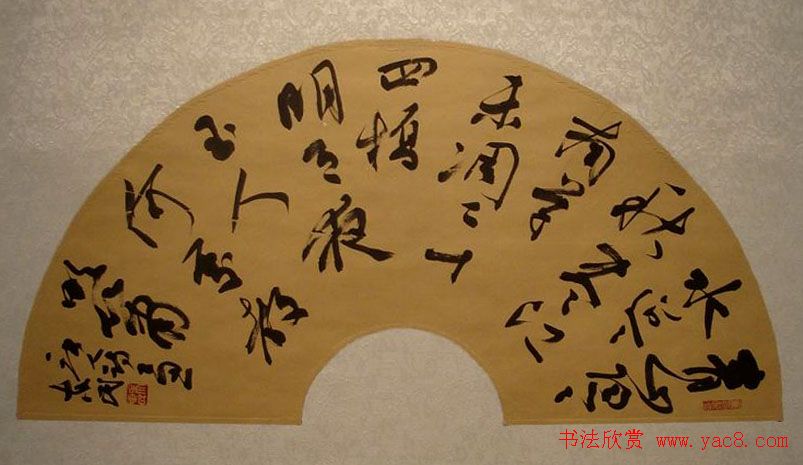 青山隱隱
水迢迢
秋盡江
南草
未凋二十
四橋
明月夜
玉人
何處教
吹簫
书法欣赏 www.yac8.com